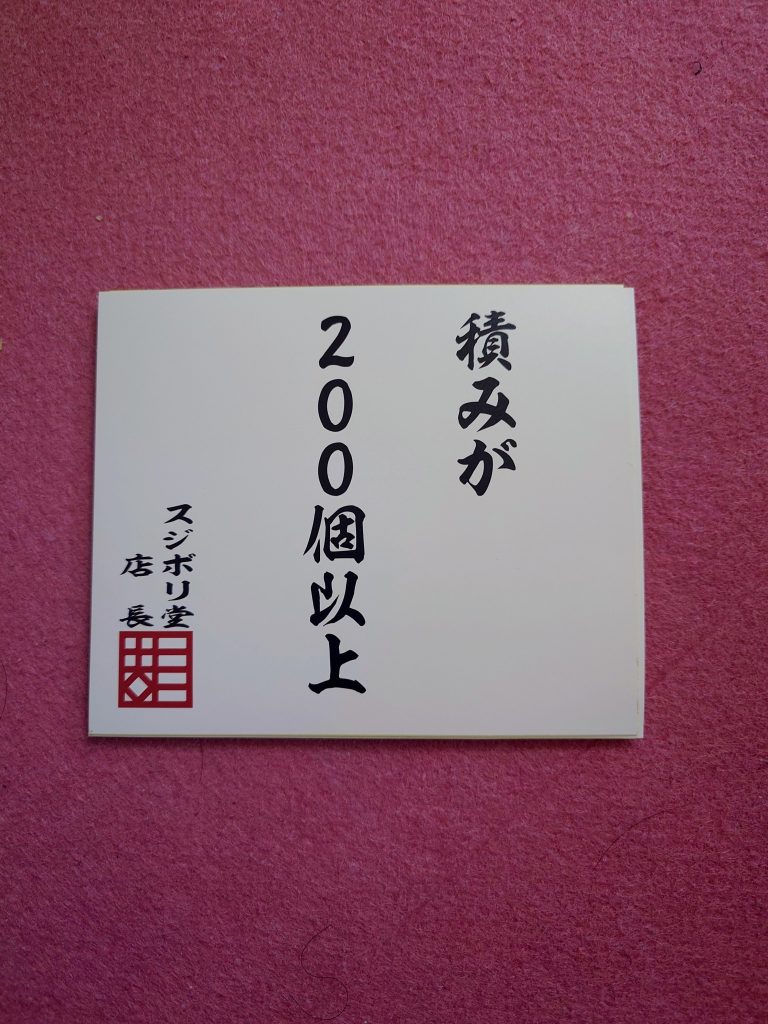 積みが
200個以上
スジボリ堂
店長